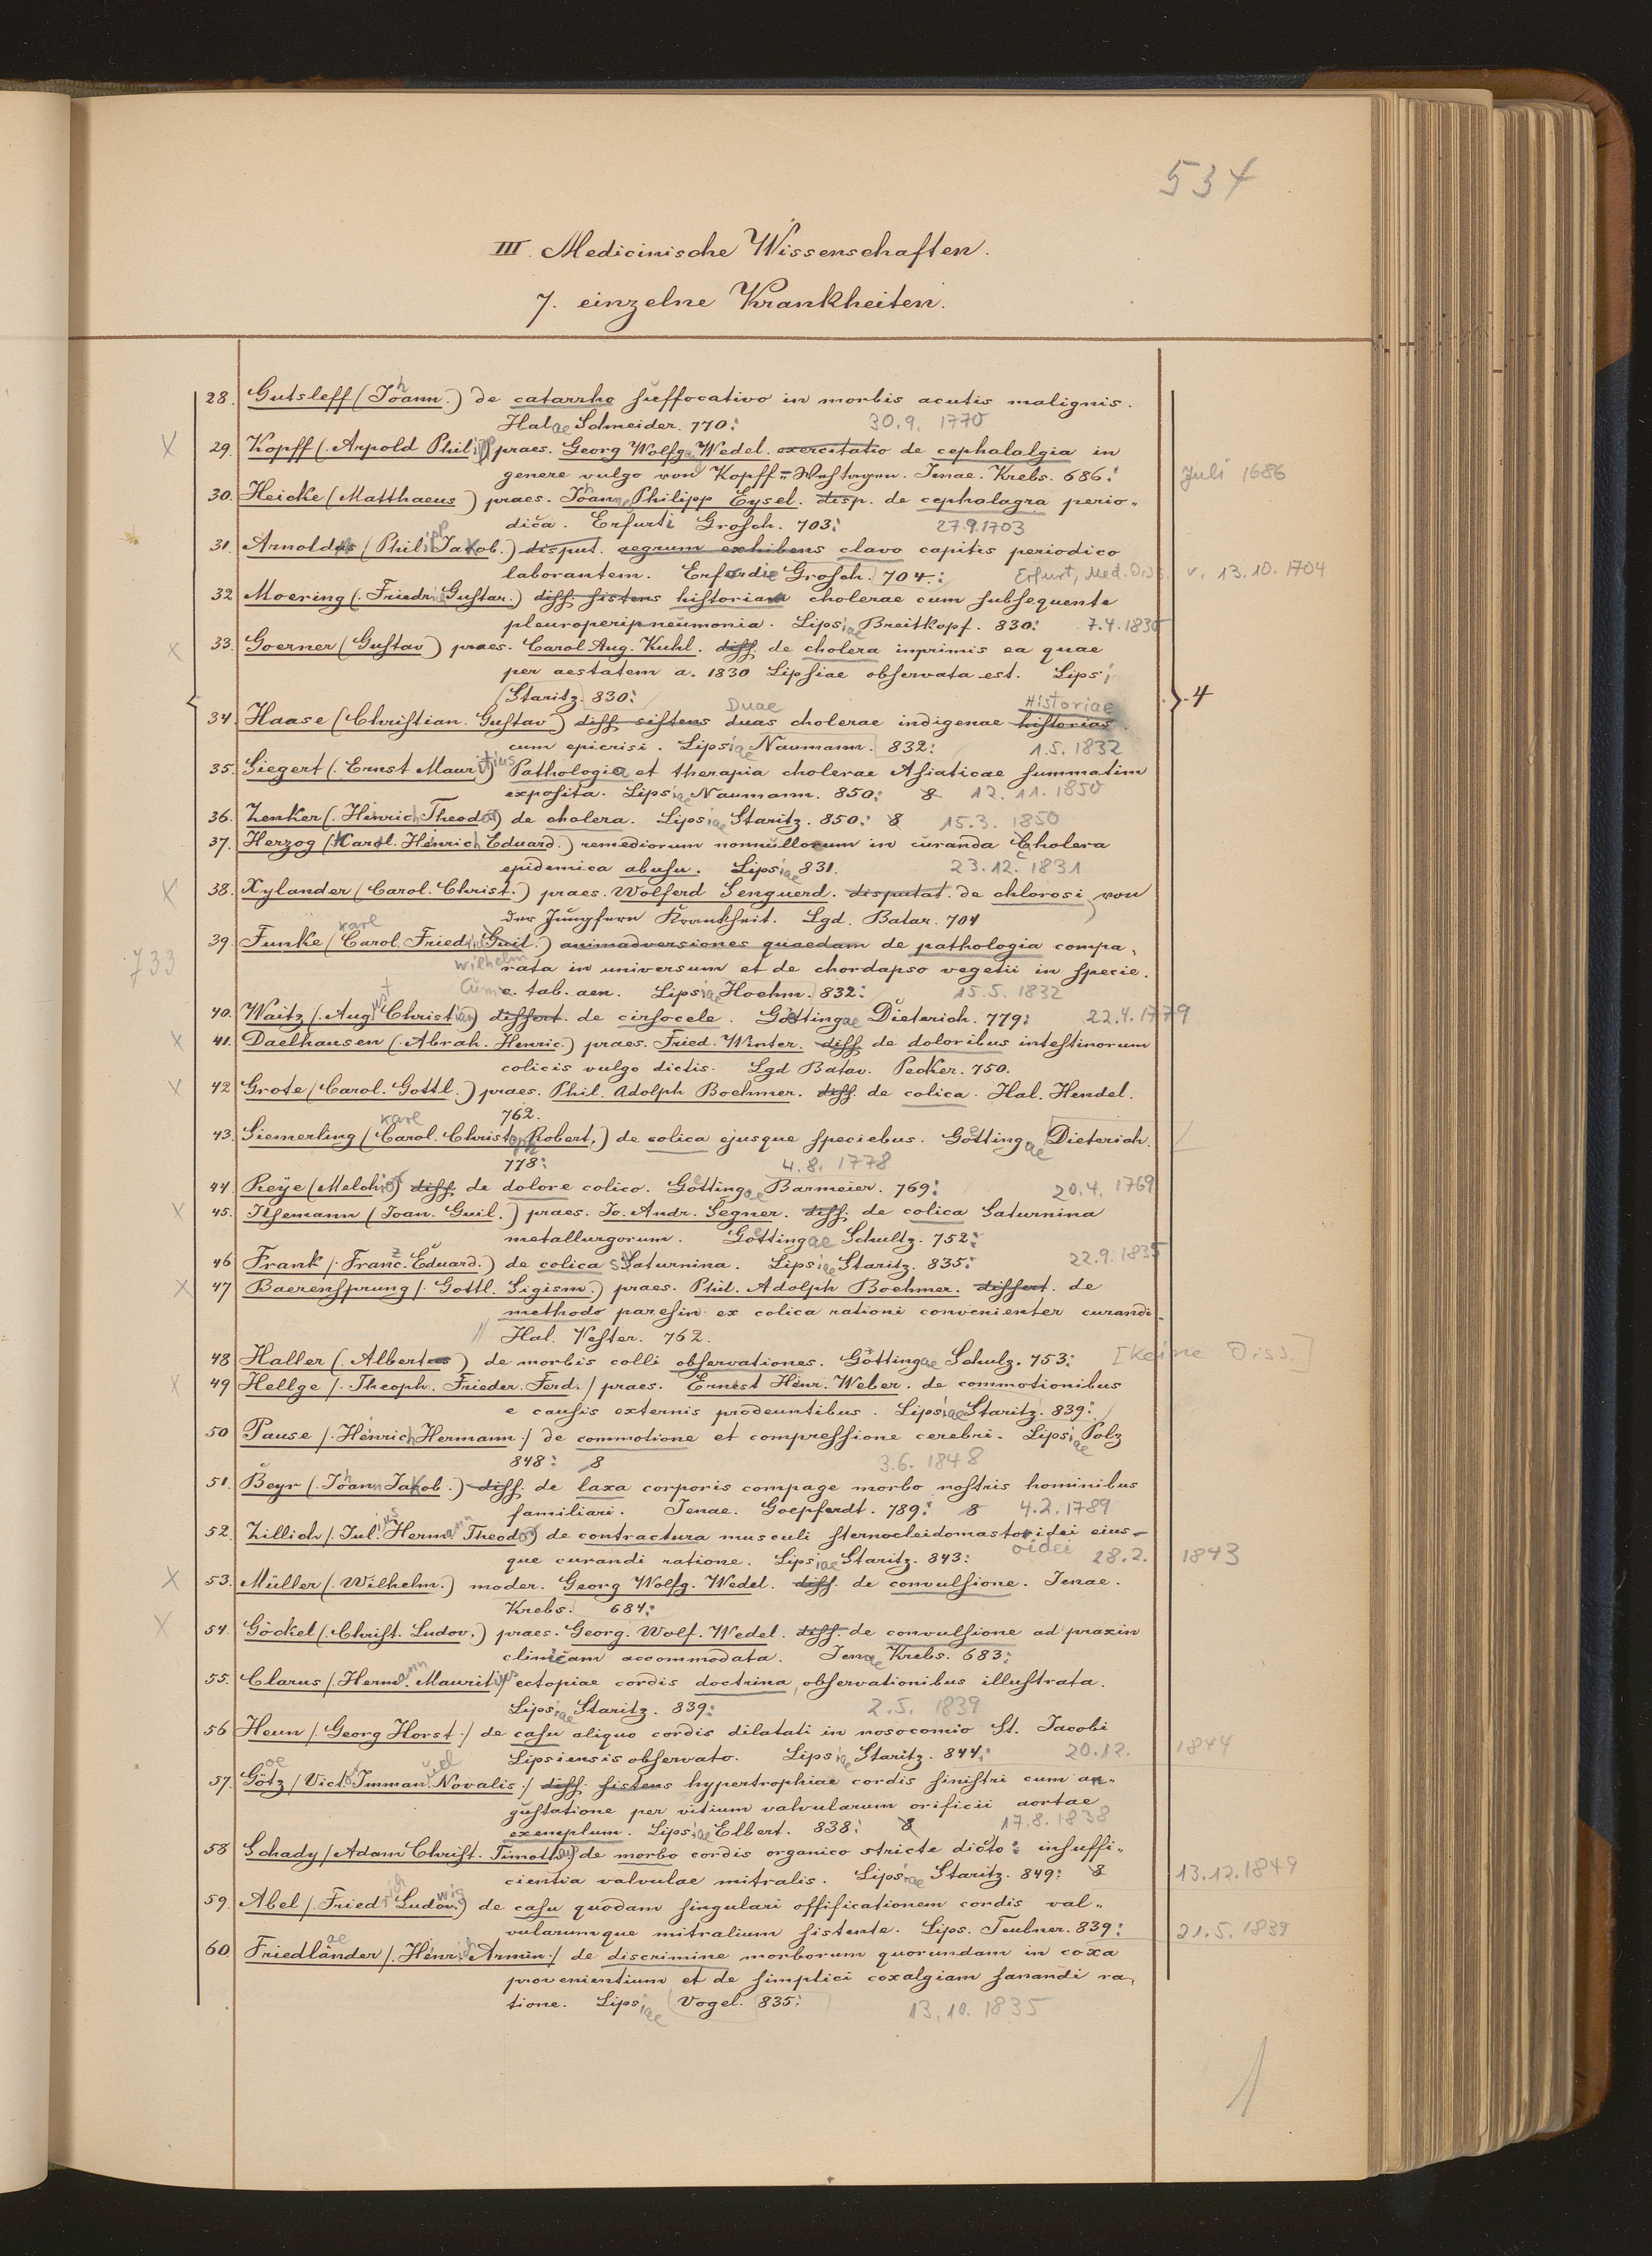 534
III. Medicinische Wissenschaften.
7. einzelne Krankheiten.
28. Gutsleff (Johann.) de catarrho suffocativo in morbis acutis malignis.
Halae Schneider. 770: 30.9. 1770
X 29. Kopff (. Arpold Philipp) praes. Georg Wolfg. Wedel. exercitatio de cephalalgia in
genere vulgo von Kopff-Wehtagen. Jenae. Krebs. 686: Juli 1686
30. Heicke (Matthaeus) praes. Johann Philipp Eysel. disp. de cephalagra perio-
dica. Erfurti Grosch. 703: 27.9.1703
31. Arnoldus (Philipp Jakob.) disput. aegrum exhibens clavo capitis periodico
laborantem. Erfordie Grosch. 704.: Erfurt, Med. Diss. v. 13.10. 1704
32 Moering (. Friedr. Gustav.) diss. sistens historiam cholerae cum subsequente
pleuroperipneumonia. Lipsiae Breitkopf. 830: 7.4.1830
X 33. Goerner (Gustav) praes. Carol Aug. Kuhl. diss. de cholera inprimis ea quae
per aestatem a. 1830 Lipsiae observata est. Lipsi
Staritz. 830: 4
Duae Historiae
34. Haase (Christian. Gustav) diss. sistens duas cholerae indigenae historias
cum epicrisi. Lipsiae Naumann. 832: 1.5. 1832
35. Siegert (. Ernst Mauritius) Pathologia et therapia cholerae Asiaticae summatim
exposita. Lipsiae Naumann. 850: 8 12.11. 1850
36. Zenker (. Heinrich Theodor) de cholera. Lipsiae Staritz. 850: 8 15.3. 1850
37. Herzog (Karl. Heinrich Eduard.) remediorum nonnullorum in curanda Cholera
epidemica abusu. Lipsiae 831. 23.12. 1831
X 38. Xylander (Carol. Christ.) praes. Wolferd Senguerd. disputat. de chlorosi von
der Jungfern Krankheit. Lgd. Batav. 704
Karl
733 39. Funke (Carol. Fried. Guil.) animadversiones quaedam de pathologia compa-
Wilhelm rata in universum et de chordapso vegetii in specie.
Cum c. tab. aen. Lipsiae Hoehm. 832: 15.5. 1832
40. Waitz (. August Christian) dissert. de cirsocele. Goettingae Dieterich. 779: 22.4.1779
X 41. Daelhausen (. Abrah. Henric.) praes. Fried. Winter. diss. de doloribus intestinorum
colicis vulgo dictis. Lgd Batav. Pecker. 750.
X 42 Grote (Carol. Gottl.) praes. Phil. Adolph Boehmer. diss. de colica. Hal. Hendel.
762.
Karl
43. Siemerling (Carol. Christoph Robert.) de colica ejusque speciebus. Goettingae Dieterich.
778: 4.8. 1778
44 Reÿe (Melchior) diss. de dolore colico. Goettingae Barmeier. 769: 20.4. 1769
X 45. Ilsemann (Joan. Guil.) praes. Jo. Andr. Segner. diss. de colica Saturnina
metallurgorum. Goettingae Schultz. 752:
46 Frank (. Franz. Eduard.) de colica Saturnina. Lipsiae Staritz. 835: 22.9.1835
X 47 Baerensprung (. Gottl. Sigism.) praes. Phil. Adolph Boehmer. dissert. de
methodo paresin ex colica rationi convenienter curandi.
Hal. Vester. 762.
48 Haller (. Albertus) de morbis colli observationes. Göttingae Schulz. 753: [Keine Diss.]
X 49 Hellge (. Theoph. Frieder. Ferd.) praes. Ernest Heinr. Weber. de commotionibus
e causis externis prodeuntibus. Lipsiae Staritz. 839:
50 Pause (. Heinrich Hermann.) de commotione et compressione cerebri. Lipsiae Polz
848: 8 3.6. 1848
51. Beyr (. Johann Jakob.) diss. de laxa corporis compage morbo nostris hominibus
familiari. Jenae. Goepferdt. 789: 8 4.2.1789
52. Zillich (. Julius Hermann Theodor) de contractura musculi sternocleidomastoidei eius-
que curandi ratione. Lipsiae Staritz. 843: oidei 28.2. 1843
X 53. Müller (. Wilhelm.) moder. Georg Wolfg. Wedel. diss. de convulsione. Jenae.
Krebs. 684:
X 54. Göckel (. Christ. Ludov.) praes. Georg. Wolf. Wedel. diss. de convulsione ad praxin
clinicam accommodata. Jenae Krebs. 683:
55. Clarus (. Hermann. Mauritius) ectopiae cordis doctrina, observationibus illustrata.
Lipsiae Staritz. 839: 2.5. 1839
56 Heun (. Georg Horst.) de casu aliquo cordis dilatati in nosocomio St. Jacobi
Lipsiensis observato. Lipsiae Staritz. 844: 20.12. 1844
57. Götz (Victor Immanuel Novalis.) diss. sistens hypertrophiae cordis sinistri cum an-
gustatione per vitium valvularum orificii aortae
exemplum. Lipsiae Elbert. 838: 8 17.8.1838
58 Schady (Adam Christ. Timotheus) de morbo cordis organico stricte dicto: insuffi-
cientia valvulae mitralis. Lipsiae Staritz. 849: 8 13.12.1849
59. Abel (. Friedrich Ludwig.) de casu quodam singulari ossificationem cordis val-
vularumque mitralium sistente. Lips. Teubner. 839: 21.5.1839
60. Friedländer (. Heinrich Armin.) de discrimine morborum quorundam in coxa
provenientium et de simplici coxalgiam sanandi ra-
tione. Lipsiae Vogel. 835: 13.10. 1835
1